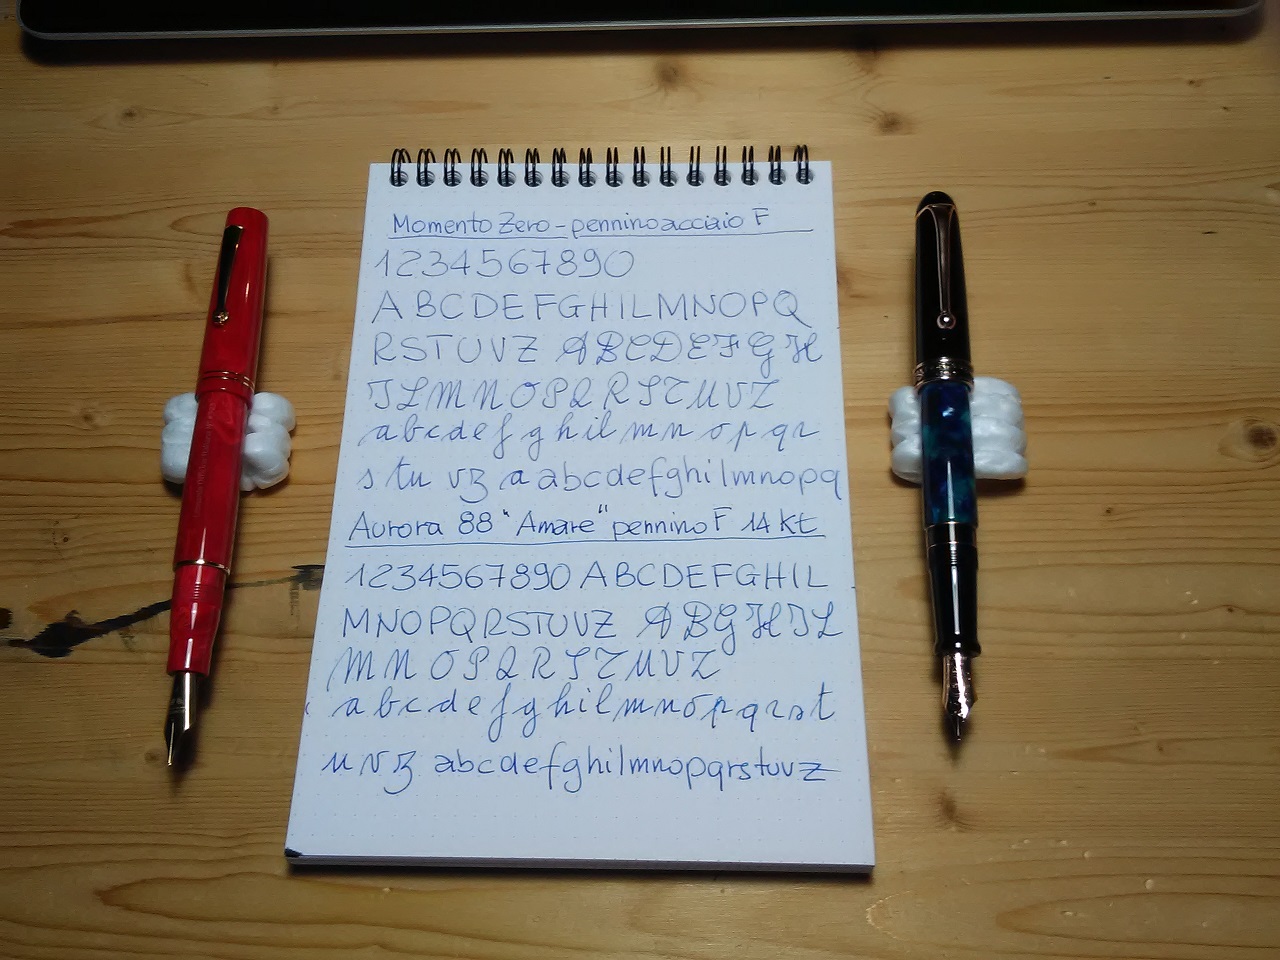 Momento Zero - pennino acciaio F
1234567890
ABCDEFGHILMNOPQ
RSTUVZ ABCDEFGH
ILMNOPQRSTUVZ
abcdefghilmnopqr
stuvz a abcdefghilmnopq
Aurora 88 "Amare" pennino F 14 Kt
1234567890 ABCDEFGHIL
MNOPQRSTUVZ ABGHIL
MNOPQRSTUVZ
abcdefghilmnopqrst
uvz abcdefghilmnopqrstuvz